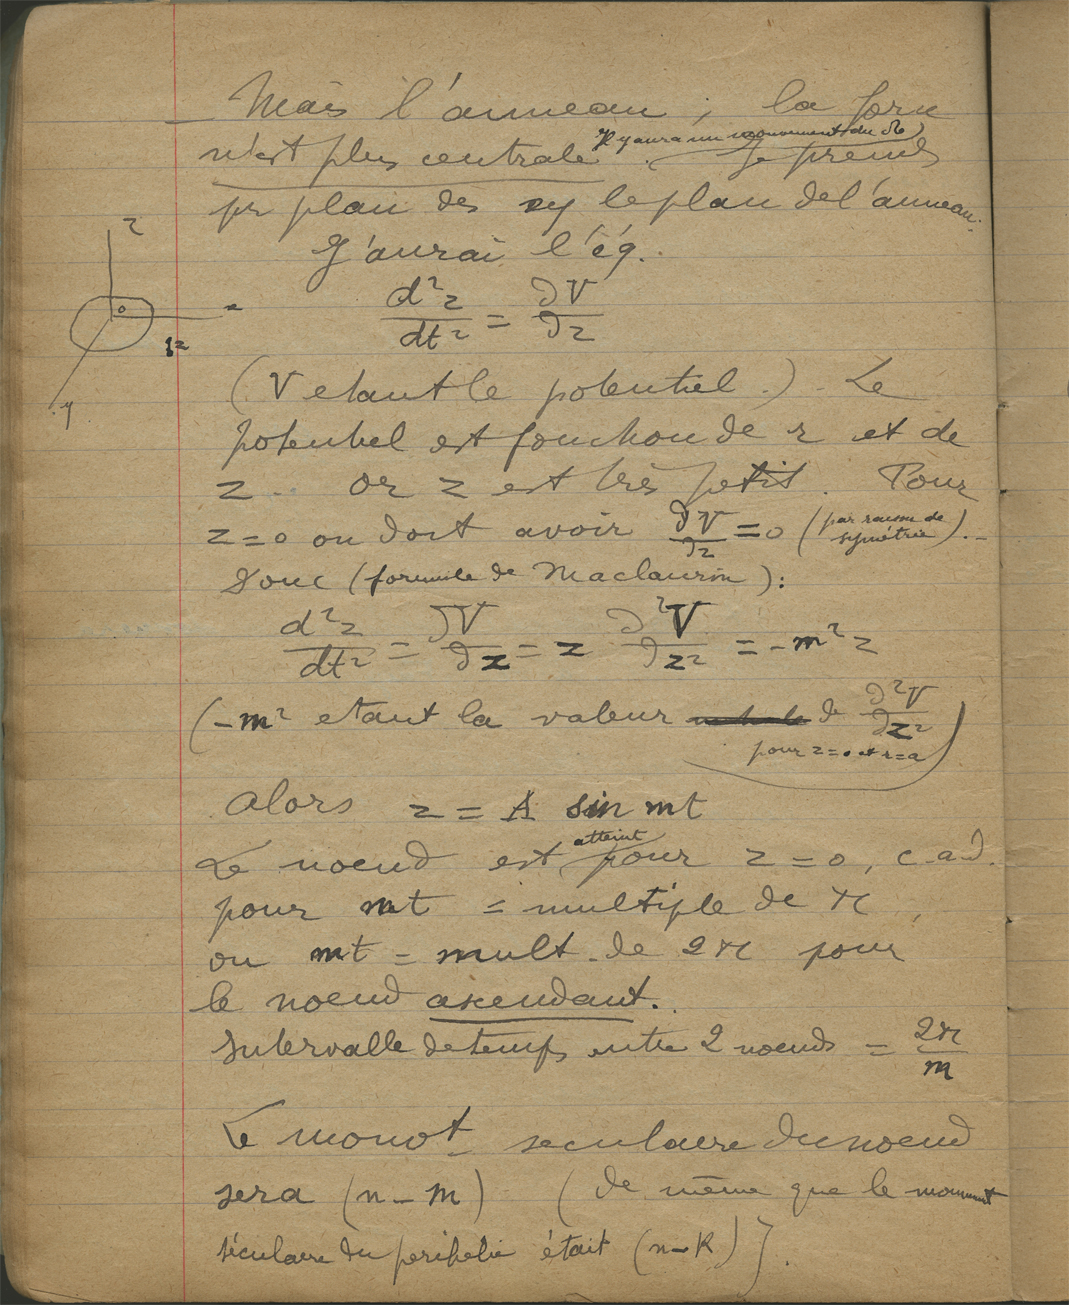 – Mais l'anneau ; la force
n'est plus centrale Il y aura un mouvement du ☊ Je prends
pr plan des xy le plan de l'anneau.
J'aurai l'éq.
z
x
y
d²z/dt² = ∂V/∂z
(V etant le potentiel.). Le
potentiel est fonction de r et de
z. or z est très petit. Pour
z=0 on doit avoir ∂V/∂z = 0 (par raison de symétrie). –
Donc (formule de Maclaurin):
d²z/dt² = ∂V/∂z = z ∂²V/∂z² = -m² z
(-m² etant la valeur de ∂²V/∂z²
pour z=0 et r=a)
Alors z = A sin mt
Le noeud est atteint pour z=0, c.a.d.
pour mt = multiple de π,
ou mt = mult. de 2π pour
le noeud ascendant.
Intervalle de temps entre 2 noeuds = 2π/m
Le mouvt seculaire du noeud
sera (n-m) (de même que le mouvement
séculaire du perihelie était (n-k)).